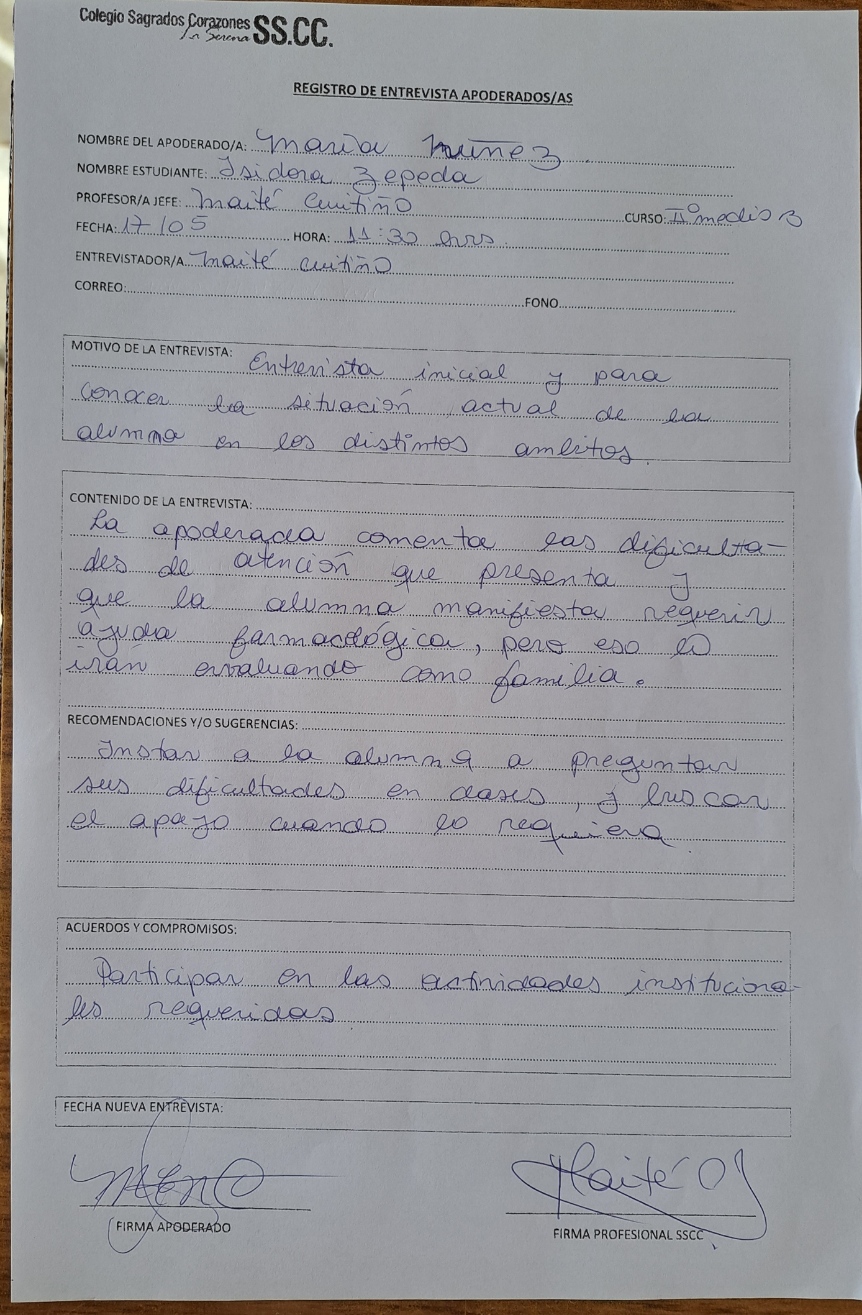 Colegio Sagrados Corazones SS.CC.
La Serena
REGISTRO DE ENTREVISTA APODERADOS/AS
NOMBRE DEL APODERADO/A: María Nuñez
NOMBRE ESTUDIANTE: Isidora Zepeda
PROFESOR/A JEFE: Maité Cuitiño CURSO: II° medio B
FECHA: 17/05 HORA: 11:30 hrs
ENTREVISTADOR/A Maité Cuitiño
CORREO: FONO
MOTIVO DE LA ENTREVISTA: Entrevista inicial y para
conocer la situación actual de la
alumna en los distintos ambitos.
CONTENIDO DE LA ENTREVISTA:
La apoderada comenta las dificulta-
des de atención que presenta y
que la alumna manifiesta requerir
ayuda farmacológica, pero eso lo
irán evaluando como familia.
RECOMENDACIONES Y/O SUGERENCIAS:
Instar a la alumna a preguntar
sus dificultades en clases, y buscar
el apoyo cuando lo requiera
ACUERDOS Y COMPROMISOS:
Participar en las actividades instituciona-
les requeridas
FECHA NUEVA ENTREVISTA:
Maité
FIRMA APODERADO
FIRMA PROFESIONAL SSCC